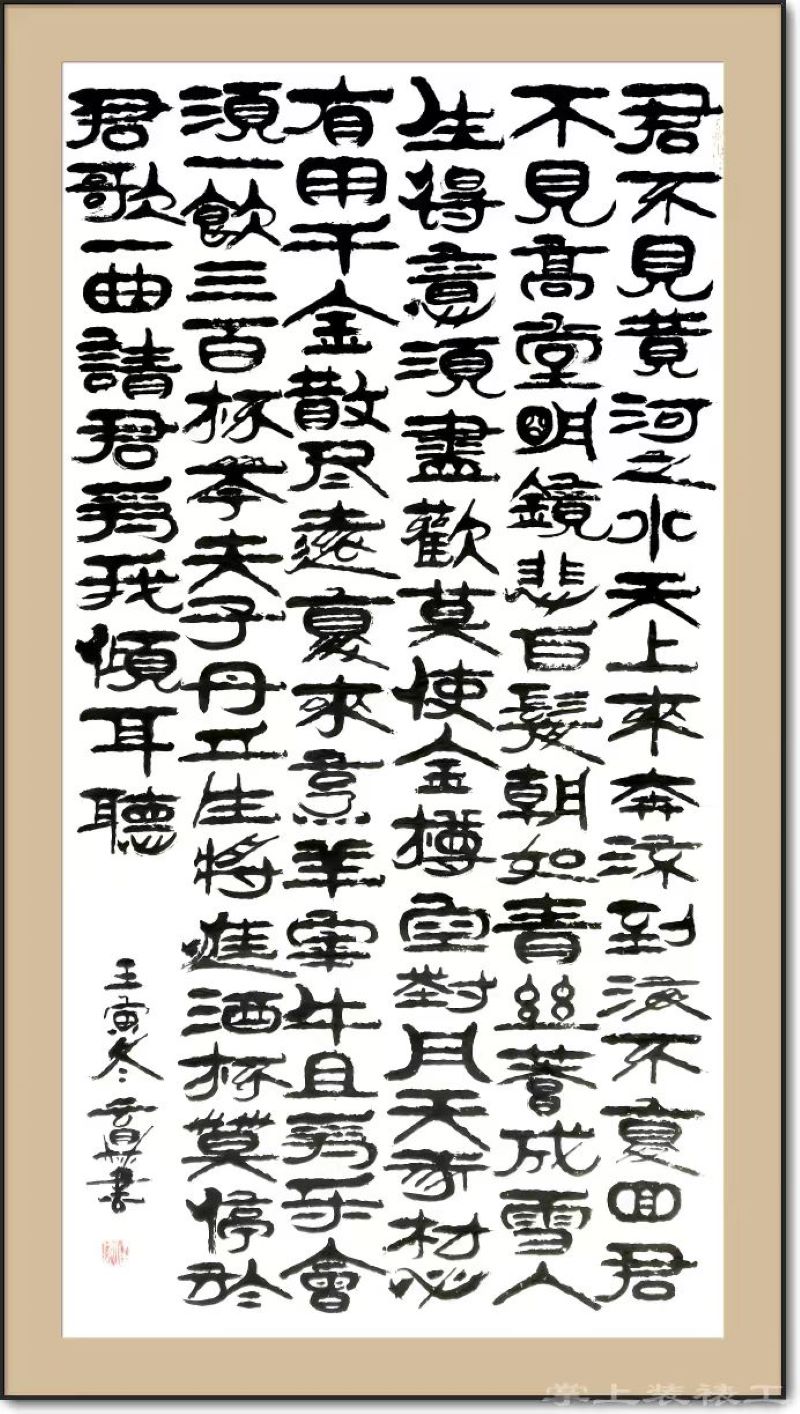 君不見黃河之水天上來奔流到海不復回君
不見高堂明鏡悲白髮朝如青絲暮成雪人
生得意須盡歡莫使金樽空對月天我材必
有用千金散尽還復來烹羊宰牛且為乐會
須一飲三百杯岑夫子丹丘生將進酒杯莫停於
君歌一曲請君為我傾耳聽
壬寅冬書
掌上装裱工